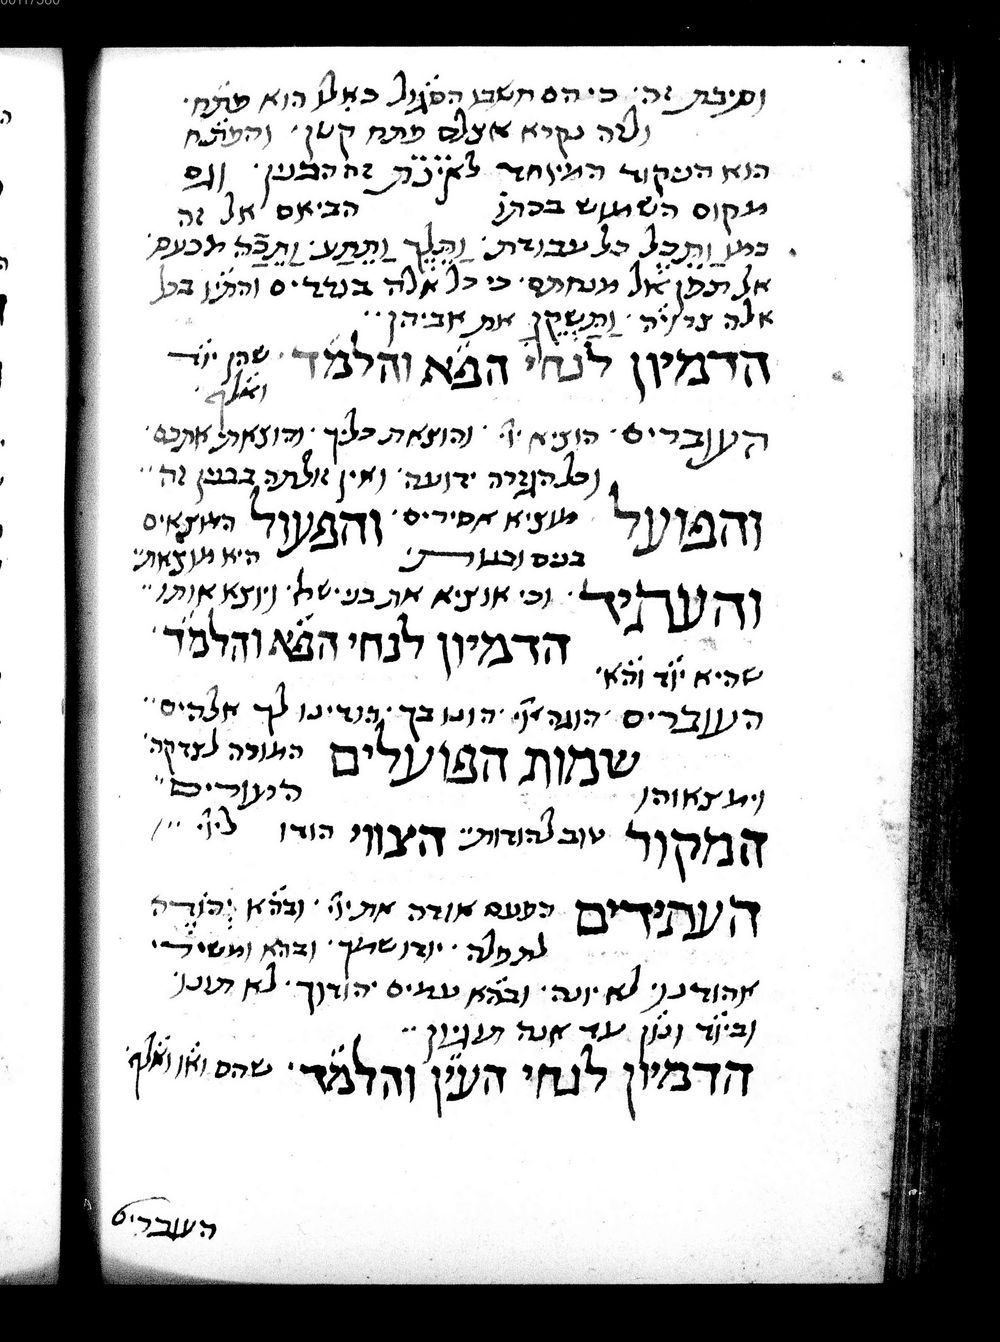 וסיבת זה׳ כי הם חשבו הסגול כאלו הוא פתח׳
ולזה נקרא אצלם פתח קטן׳ והפתח
הוא הניקוד המיוחד לאיתן זה הבנין׳ וגם
מקום השמוש בכתו הביאם אל זה
כמו וַתֵּכֶל כל עבודת׳ וַתֵּלֶךְ וַתֵּתַע׳ וַתֵּכַהּ מכעס
אל תפן אל מנחתם׳ כי כל אלה בנדדים והתיו בכל
אלה צרויה׳ וַתַּשְׁקֶין את אביהן
הדמיון לנחי הפא והלמד׳ שהן יוד
ואלף׳
העוברים׳ הוציא יי׳ והוצאת כליך׳ והוצאתי אתכם׳
וכל הגזרה ידועה׳ ואין זולתה בבנין זה
והפועל מוציא אסירים׳ והפעול המוצאים
בנים ובנות׳ היא מוצאת׳
והעתיד׳ וכי אוציא את בני ישר׳ ויוצא אותו
הדמיון לנחי הפא והלמד׳
שהיא יוד והא׳
העוברים׳ הוגה יי׳ הונו בך׳ הודינו לך אלהים
שמות הפועלים המורה לצדקה׳
וימצאוהו המורים
המקור טוב להודות׳ הצווי הודו ליי׳
העתידים הפעם אודה את יי׳ ובהא יְהוֹדֶה
לתפלה׳ יודו שמך׳ ובהא ומשירי׳
אהודנו׳ לא יונה׳ ובהא עמים יהודוך׳ לא תונו׳
וביוד ונון עד אנה תוגיון
הדמיון לנחי העין והלמד׳ שהם ואו ואלף׳
העוברים